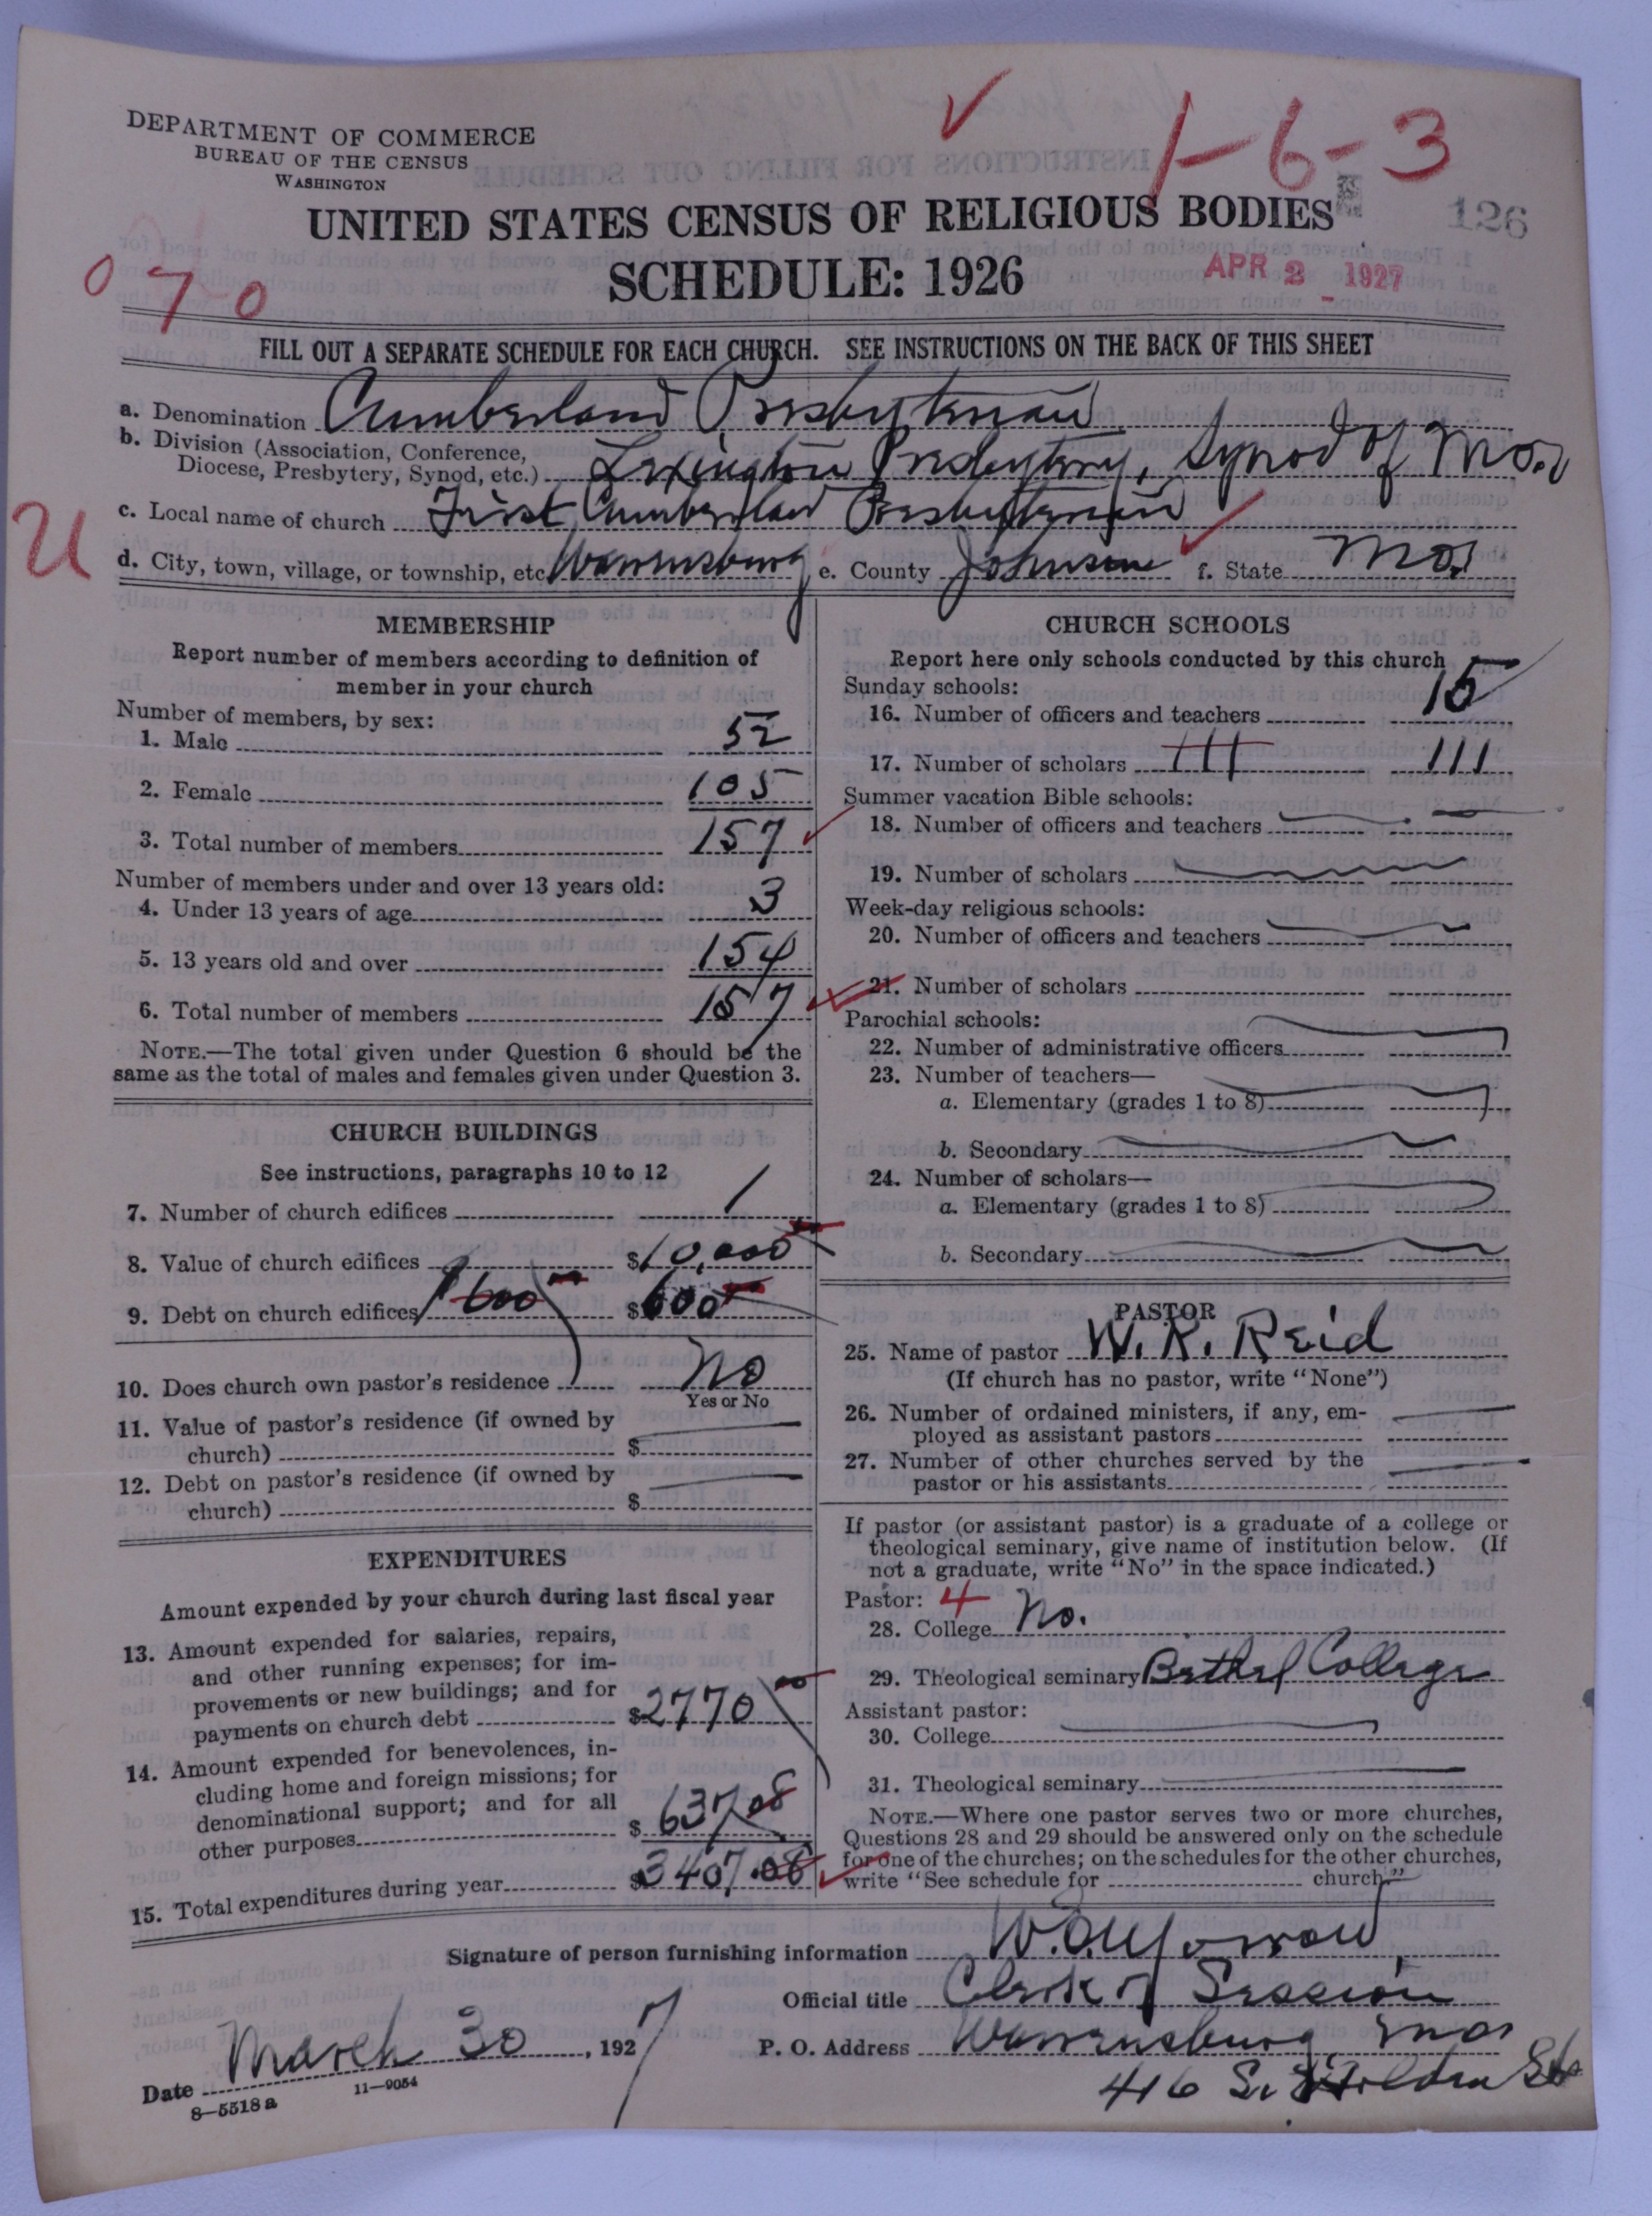 DEPARTMENT OF COMMERCE
BUREAU OF THE CENSUS
WASHINGTON
1-6-3
126
UNITED STATES CENSUS OF RELIGIOUS BODIES
SCHEDULE: 1926
APR 2 1927
070
FILL OUT A SEPARATE SCHEDULE FOR EACH CHURCH. SEE INSTRUCTIONS ON THE BACK OF THIS SHEET
a. Denomination Cumberland Presbyterian
b. Division (Association, Conference,
Diocese, Presbytery, Synod, etc.) Lexington Presbytery, Synod of Mo.
U
c. Local name of church First Cumberland Presbyterian
d. City, town, village, or township, etc Warrensburg e. County Johnson f. State Mo.
MEMBERSHIP
Report number of members according to definition of
member in your church
Number of members, by sex:
1. Male 52
2. Female 105
3. Total number of members 157
Number of members under and over 13 years old:
4. Under 13 years of age 3
5. 13 years old and over 154
6. Total number of members 157
NOTE.—The total given under Question 6 should be the
same as the total of males and females given under Question 3.
CHURCH BUILDINGS
See instructions, paragraphs 10 to 12
7. Number of church edifices 1
8. Value of church edifices $10,000
9. Debt on church edifices 600 $600
10. Does church own pastor's residence No
Yes or No
11. Value of pastor's residence (if owned by
church) $
12. Debt on pastor's residence (if owned by
church) $
EXPENDITURES
Amount expended by your church during last fiscal year
13. Amount expended for salaries, repairs,
and other running expenses; for im-
provements or new buildings; and for
payments on church debt $2770 00
14. Amount expended for benevolences, in-
cluding home and foreign missions; for
denominational support; and for all
other purposes $637 08
15. Total expenditures during year $3407.08
CHURCH SCHOOLS
Report here only schools conducted by this church
Sunday schools:
16. Number of officers and teachers 15
17. Number of scholars 111 111
Summer vacation Bible schools:
18. Number of officers and teachers
19. Number of scholars
Week-day religious schools:
20. Number of officers and teachers
21. Number of scholars
Parochial schools:
22. Number of administrative officers
23. Number of teachers—
a. Elementary (grades 1 to 8)
b. Secondary
24. Number of scholars—
a. Elementary (grades 1 to 8)
b. Secondary
PASTOR
25. Name of pastor W. R. Reid
(If church has no pastor, write "None")
26. Number of ordained ministers, if any, em-
ployed as assistant pastors
27. Number of other churches served by the
pastor or his assistants
If pastor (or assistant pastor) is a graduate of a college or
theological seminary, give name of institution below. (If
not a graduate, write "No" in the space indicated.)
Pastor: 4
28. College No.
29. Theological seminary Bethel College
Assistant pastor:
30. College
31. Theological seminary
NOTE.—Where one pastor serves two or more churches,
Questions 28 and 29 should be answered only on the schedule
for one of the churches; on the schedules for the other churches,
write "See schedule for church."
Signature of person furnishing information
Official title Clerk of Session
Date March 30, 1927
P. O. Address Warrensburg Mo
416 S. Holden St
8—5518a
11—9054